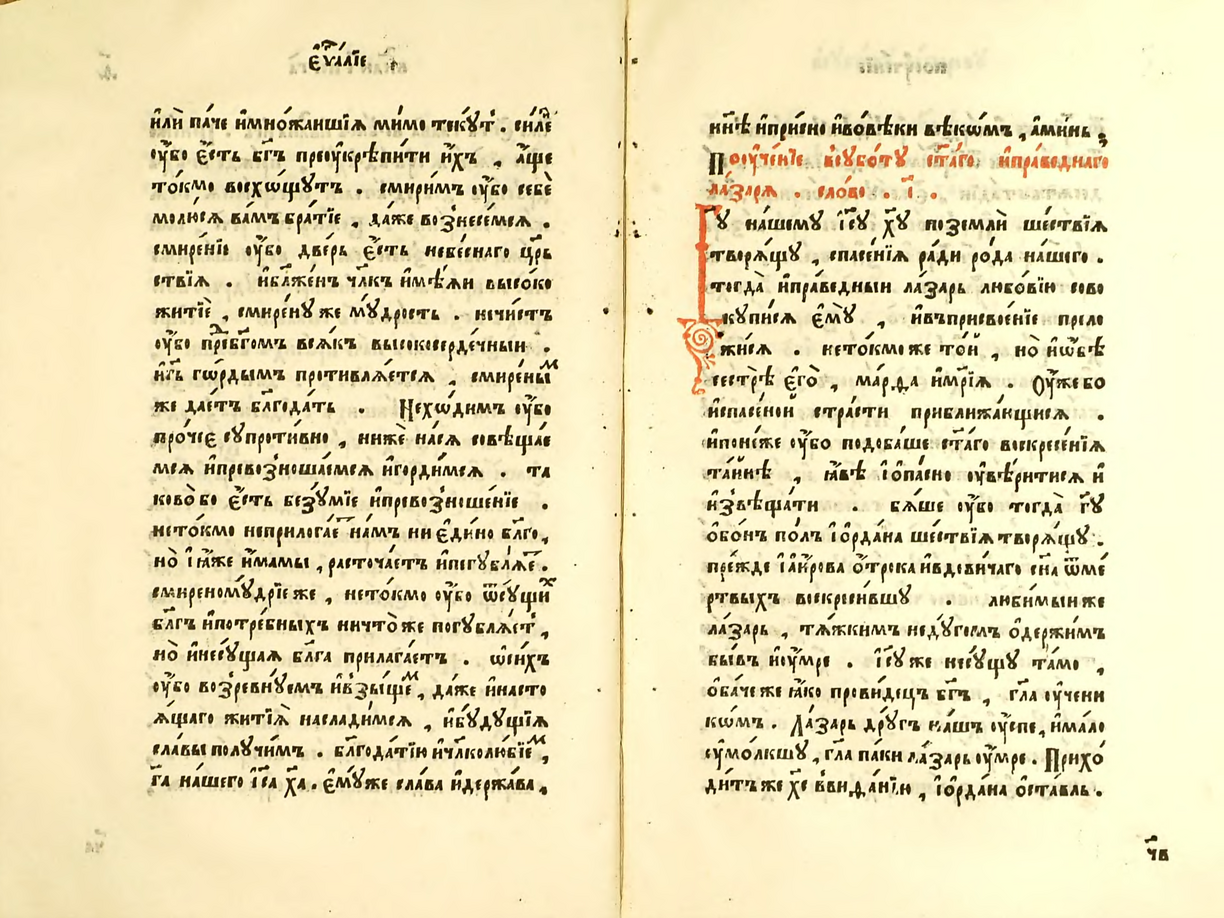 еѵⷢ҇лїе
и҆лѝ па́че и҆мно́жаишїѧ ми́мо текꙋ́т̾ . си́ленⷩ
ᲂу҆́бо є҆́сть бг҃ъ преᲂу҆крѣпи́ти и҆́хъ , а҆́ще
то́кмо восхо́щꙋтъ . смири́мъ ᲂу҆́бо себѐ
молю́сѧ ва́мъ бра́тїе , да́же возⸯнесе́мсѧ .
смире́нїе ᲂу҆́бо две́рь є҆́сть небе́снаго црⷭ҇
ствїѧ . и҆бл҃же́нъ чл҃къ и҆мѣ́ѧи высоко
житїѐ , смире́нꙋ же мꙋ́дрость . нечи́стъ
ᲂу҆́бо преⷣбг҃омъ всѧ́къ высокосерде́чныи .
и҆гь го́рдымъ противлѧ́етсѧ , смире́ныⷨ
же дае́тъ блг҃ода́ть . Не хѡ́димъ ᲂу҆́бо
про́чее сꙋпроти́вно , нижѐ на́сѧ совѣща́е
мсѧ и҆превозⸯноша́емсѧ и҆горди́мсѧ . та
ково́ бо є҆́сть безꙋ́мїе и҆превозⸯноше́нїе .
нето́кмо неприлога́еⷮ на́мъ ни є҆ди́но бл҃го ,
но̀ і҆ ꙗ҆́же и҆́мамы , расточа́етъ и҆погꙋблѧ́еⷮ .
смиреномꙋ́дрїе же , нето́кмо ᲂу҆́бо ѿсꙋ́щиⷯ
бл҃гъ и҆потре́бныхъ ничто́ же погꙋблѧ́ет̾ ,
но̀ и҆несꙋ́щаѧ бл҃га прилага́етъ . ѡ҆си́хъ
ᲂу҆́бо возⸯревнꙋ́емъ и҆взы́щеⷨ , да́же и҆насто
ѧ́щаго житїѧ̀ наслади́мсѧ , и҆бꙋ́дꙋщїѧ
сла́вы полꙋчи́мъ . блг҃ода́тїю и҆чл҃колю́бїеⷨ ,
га҃ на́шего і҆са҃ ха҃ . є҆мꙋ́же сла́ва и҆держа́ва ,
ни҃нѣ и҆при́сно и҆вовѣ́ки вѣко́мъ , а҆ми́нь .
Поᲂуче́нїе всꙋбо́тꙋ ст҃а́го и҆пра́веднаго
ла́зарѧ . сло́во . і҃ .
Гꙋ҃ на́шемꙋ і҆сꙋ҃ хꙋ҃ поземлѝ ше́ствїѧ
творѧ́щꙋ , спасе́нїѧ ра́ди ро́да на́шего .
тогда̀ и҆пра́ведныи ла́зарь любо́вїю сово
кꙋпи́сѧ є҆мꙋ̀ , и҆въприсвое́нїе прело
жи́сѧ . нето́кмо же то́и , но̀ и҆ѻ҆́бѣ
сестрѣ̀ є҆го̀ , ма́рѳа и҆мр҃їѧ . Оу҆́же бо
и҆спасе́нои стра́сти приближа́ющисѧ .
и҆поне́же ᲂу҆́бо подоба́ше ст҃а́го воскресе́нїѧ
та́инѣ , ꙗ҆́вѣ і҆ ѻ҆па́сно ᲂу҆вѣ́ритисѧ и҆
и҆звѣща́ти . бѧ́ше ᲂу҆́бо тогда̀ гꙋ҃
ѻ҆бо́нъ по́лъ і҆ѻ҆рда́на ше́ствїѧ творѧ́щꙋ .
пре́жде і҆а҆и́рова ѻ҆́трока и҆вдови́чаго сн҃а ѿме́
ртвыхъ воскреси́вшꙋ . люби́мыи же
ла́зарь , тѧ́жкимъ недꙋ́гомъ ѻ҆держи́мъ
бы́въ и҆ᲂу҆́мре . і҆сꙋ҃ же несꙋ́щꙋ та́мо ,
ѻ҆ба́че же ꙗ҆́ко прови́децъ бг҃ъ , гл҃а ᲂу҆чени
ко́мъ . Ла́зарь дрꙋ́гъ на́шъ ᲂу҆́спе , и҆ма́ло
ᲂу҆мо́лкшꙋ , гл҃а па́ки ла́зарь ᲂу҆́мре . Прихо́
дитъ же хс҃ ввиѳа́нїю , і҆ѻ҆рда́на ѻ҆ста́вль .
ч҃в